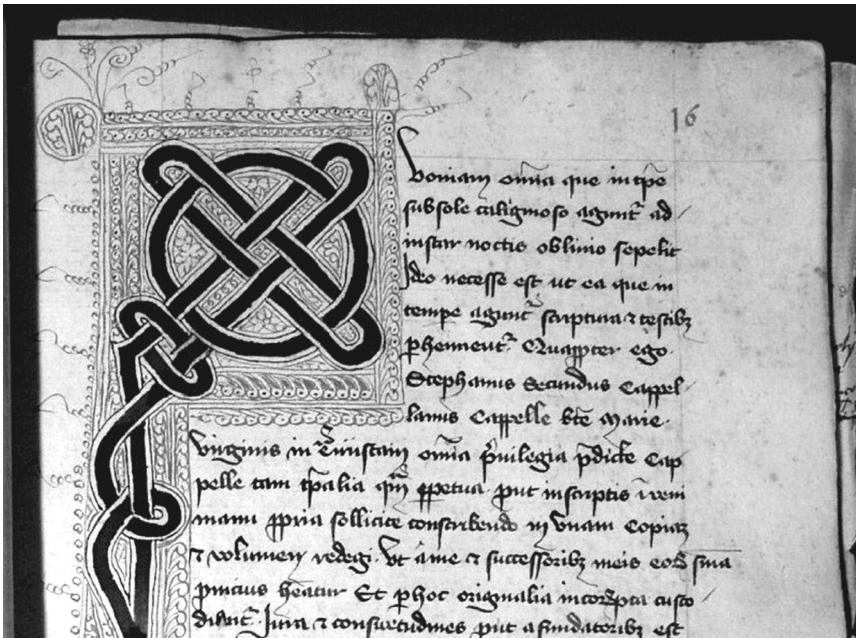 16
Quoniam om̄ia que in tp̄e
sub sole caliginoso agunt͛ ad
instar noctis oblivio sepelit
Ideo necesse est ut ea que in
tempe agunt͛ scriptura ⁊ testibꝫ
ꝑhennent͛ Quapp̄ter ego
Stephanus Secundus Cappel
lanus Cappelle bt̄e Marie
virginis in om̄ia p̓uilegia p̄dicte Cap
pelle tam tp̄alia qm̄ ꝑpetua put in scriptis
manu ꝓpria sollicite conscribendo in vnam Copiaꝫ
⁊ volumen redegi. Vt a me ⁊ successoribꝫ meis eoꝝ
heatur Et ꝑ hoc originalia custo
Iura ⁊ consuetudines put a fundatoribꝫ est